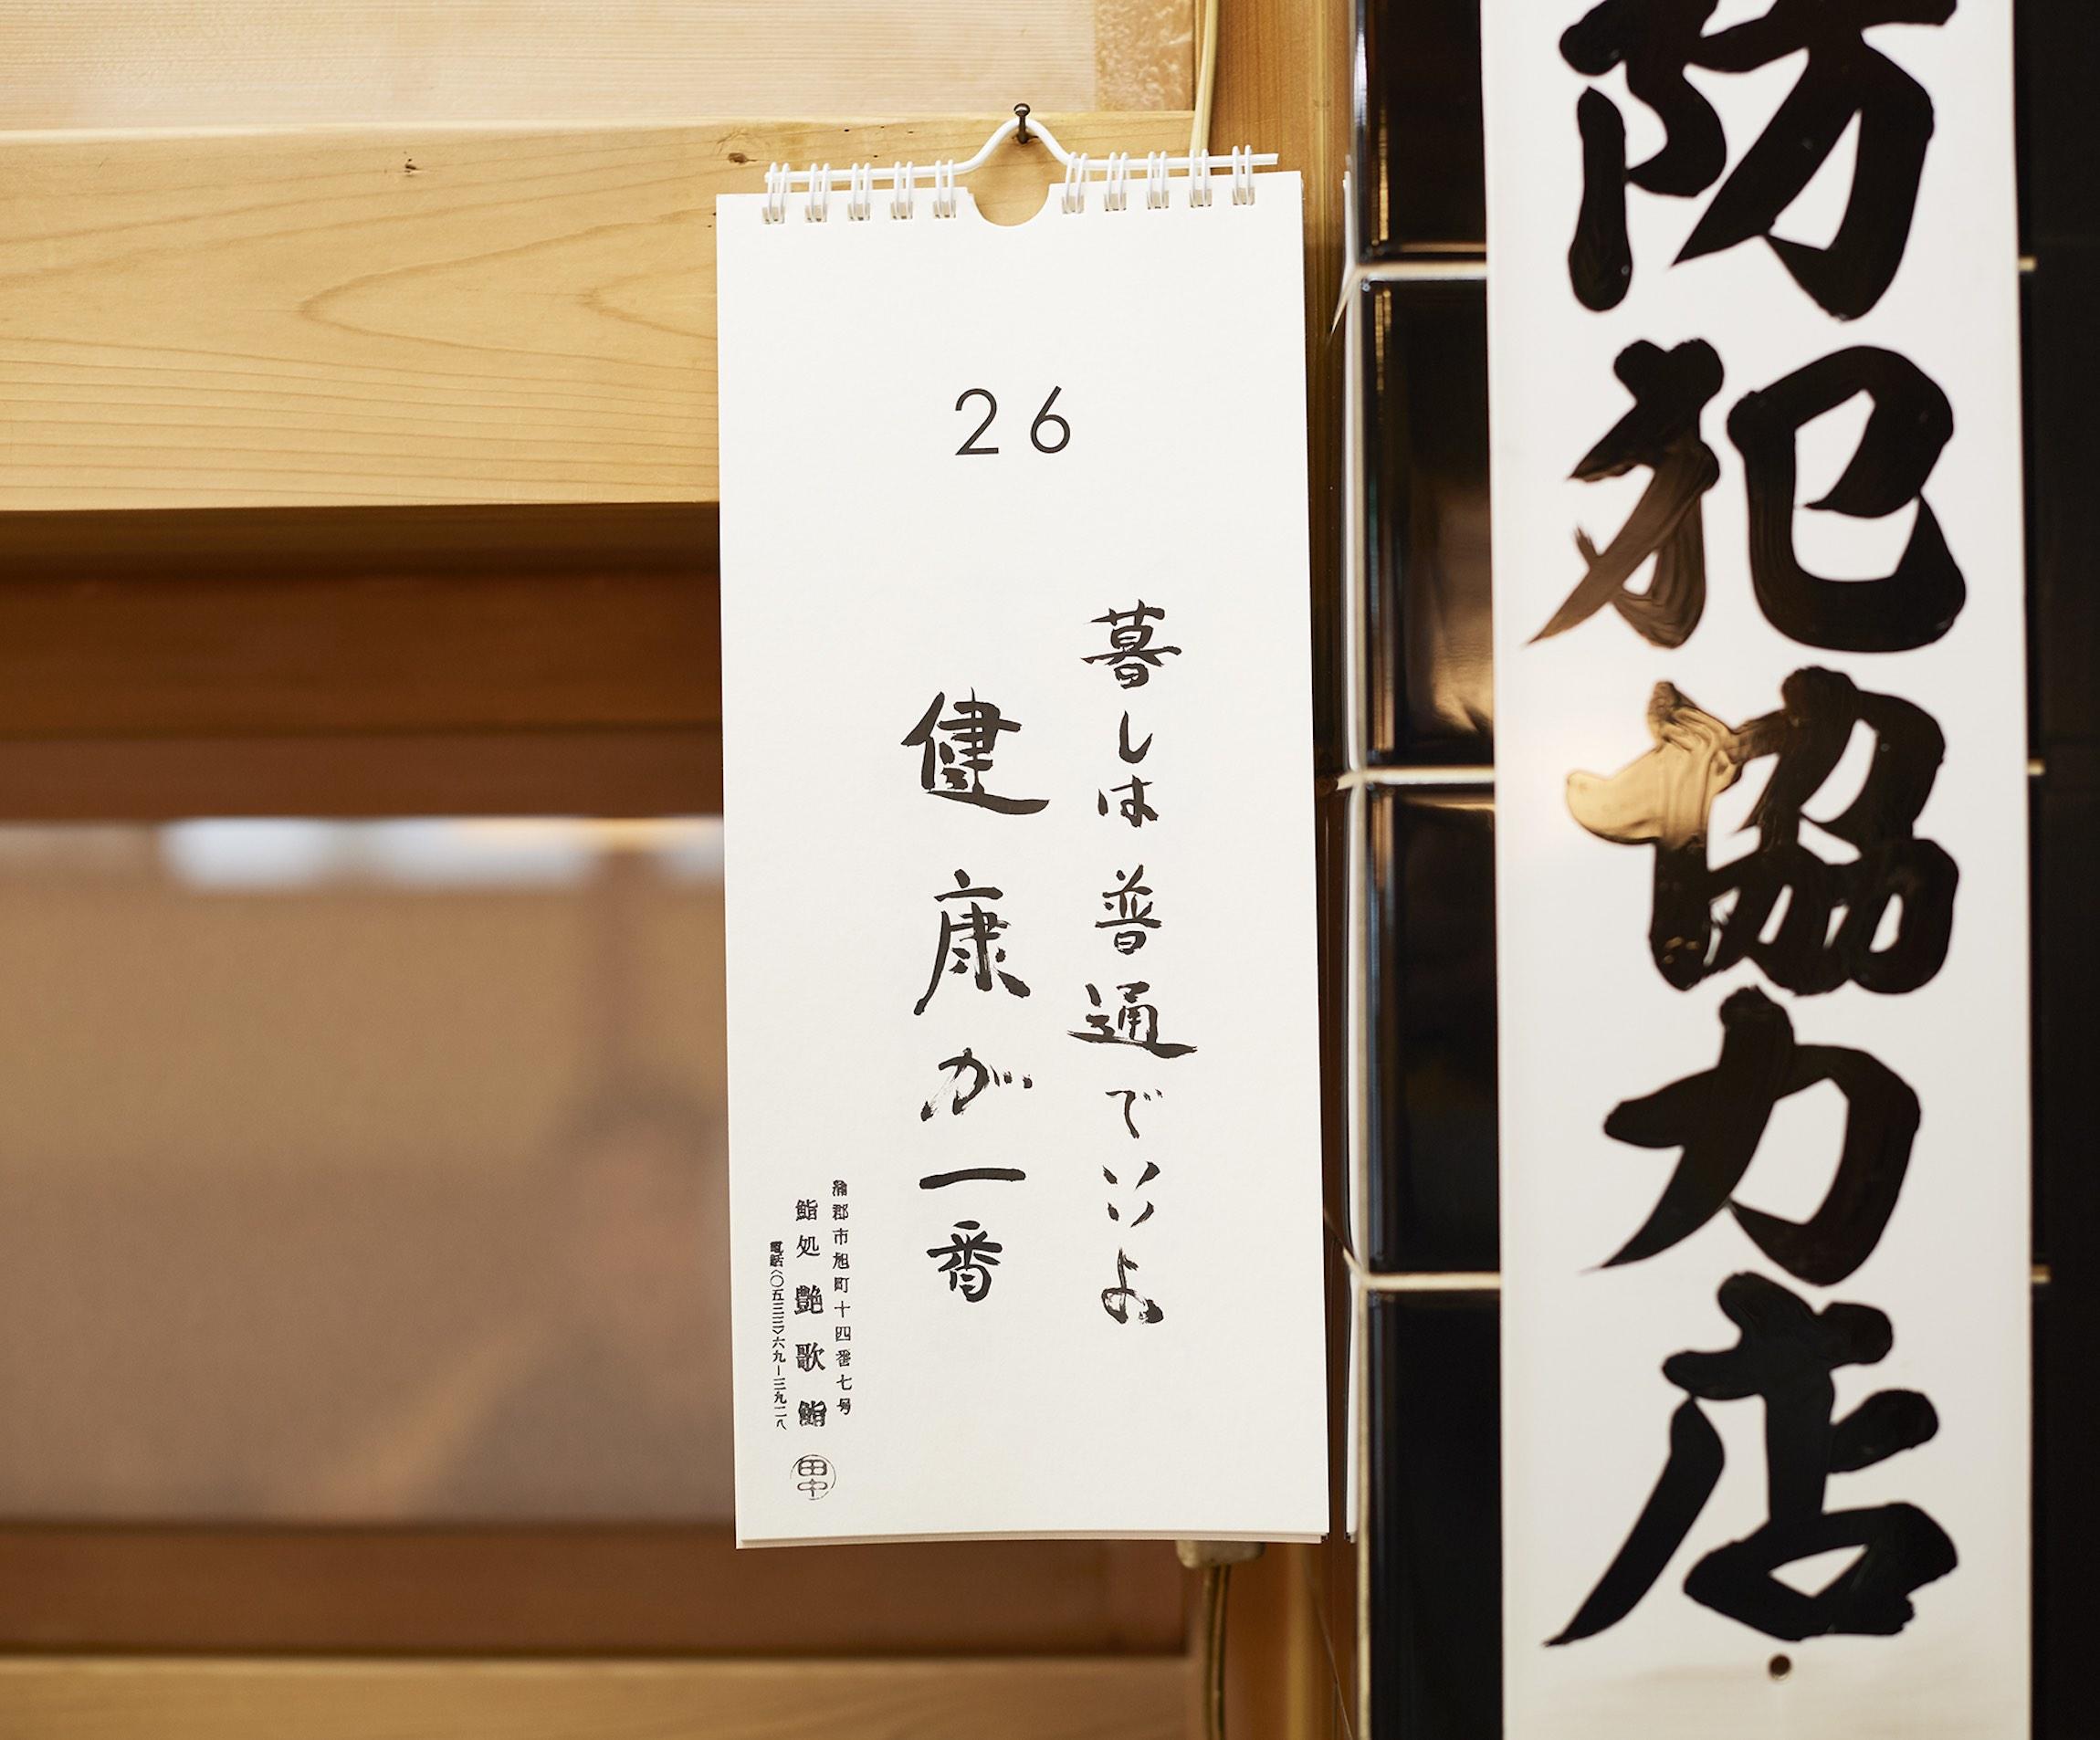 防犯協力店
26
暮しは普通でいいよ
健康が一番
蒲郡市旭町十四番七号
鮨処 艶歌鮨
電話〈〇五三三〉六九ー三九二八
田中